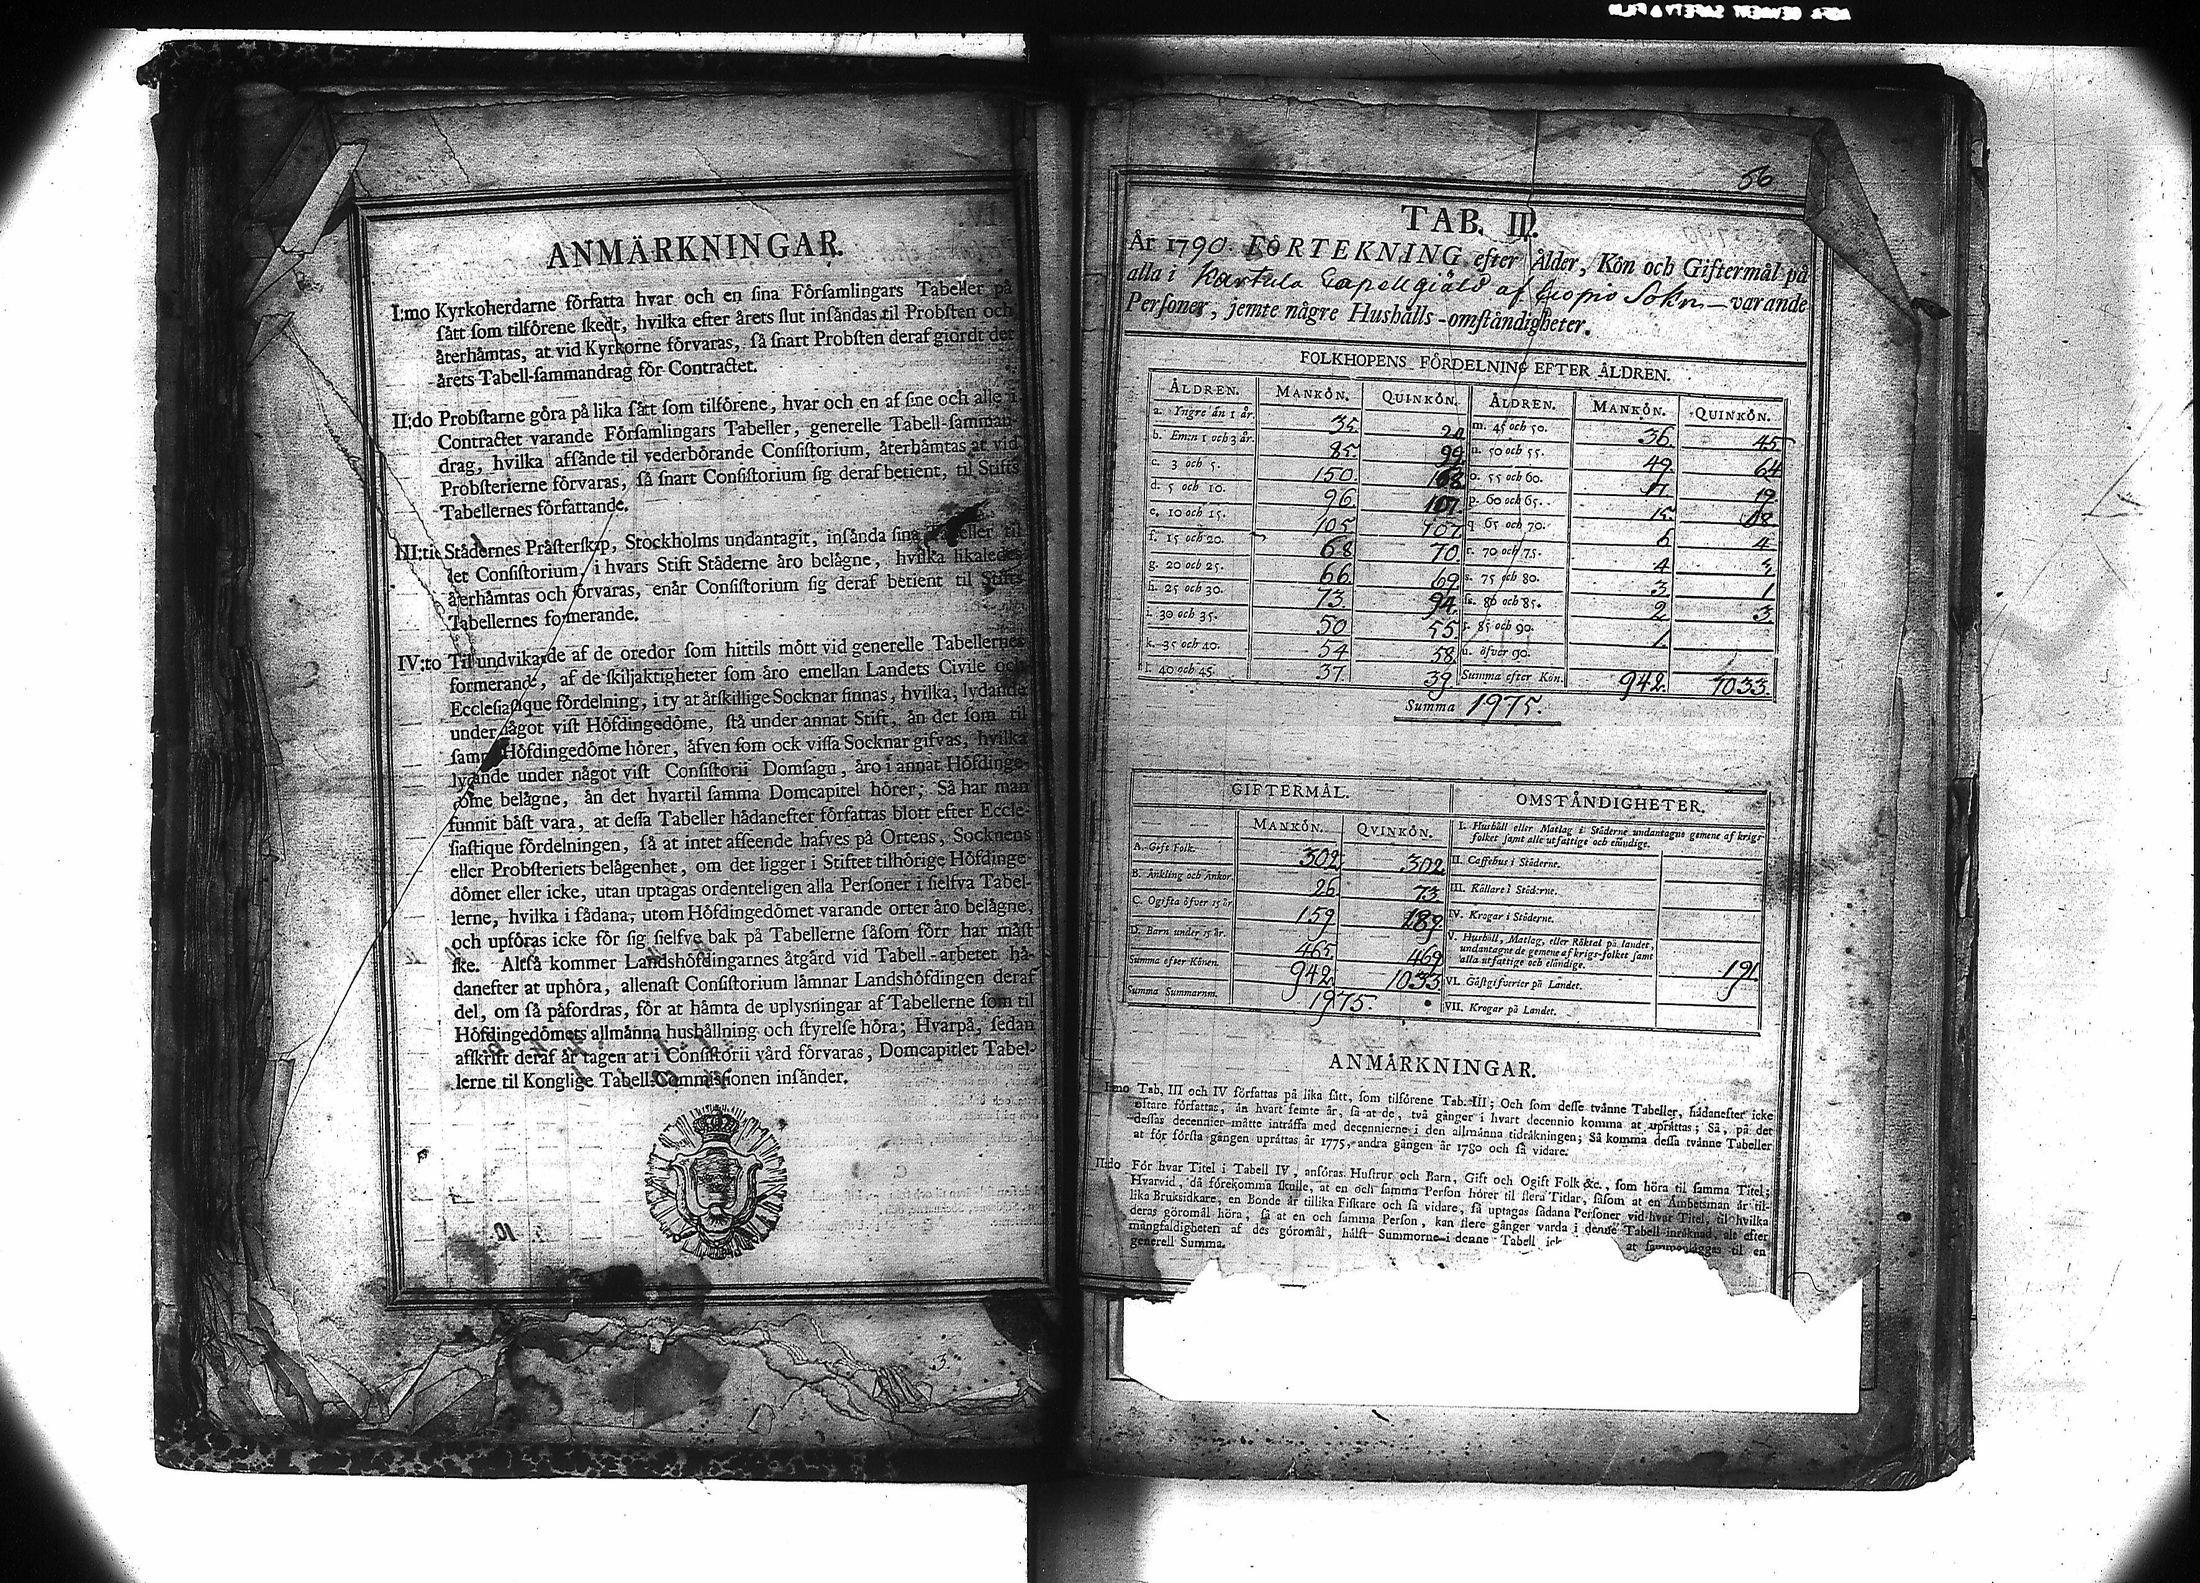 ANMÄRKNINGAR.
I:mo Kyrkoherdarne författa hvar och en sina Församlingars Tabeller på
sått som tilförene skedt, hvilka efter årets slut insändas til Probsten och
återhämtas, at vid Kyrkorne förvaras, så snart Probsten deraf giordt det
årets Tabell-sammandrag för Contractet.
II:do Probstarne göra på lika sått som tilförene, hvar och en af sine och alle i
Contractet varande Församlingars Tabeller, generelle Tabell-samman-
drag, hvilka affände til vederbörande Consistorium, återhämtas at vid
Probsterierne förvaras, så snart Consistorium sig deraf betient, til Stifts
Tabellernes författande.
III:tie Städernes Prästerskap, Stockholms undantagit, insända sina Tabeller til
det Consistorium, i hvars Stift Städerne äro belägne, hvilka likaledes
återhämtas och förvaras, enår Consistorium sig deraf betient til Stifts
Tabellernes formerande.
IV:to Til undvikande af de oredor som hittils mött vid generelle Tabellernes
formerande, af de skiljaktigheter som äro emellan Landets Civile och
Ecclesiastique fördelning, i ty at åtskillige Socknar finnas, hvilka, lydande
under något vist Höfdingedöme, stå under annat Stift, än det som til
samma Höfdingedöme hörer, äfven som ock vissa Socknar gifvas, hvilka
lydande under något vist Consistorii Domsagu, äro i annat Höfdinge-
döme belägne, än det hvartil samma Domcapitel hörer; Så har man
funnit bäst vara, at dessa Tabeller hädanefter författas blott efter Eccle-
siastique fördelningen, så at intet afseende hafves på Ortens, Socknens
eller Probsteriets belägenhet, om det ligger i Stiftet tilhörige Höfdinge-
dömet eller icke, utan uptagas ordenteligen alla Personer i sielfva Tabel-
lerne, hvilka i sådana, utom Höfdingedömet varande orter äro belägne,
och upföras icke för sig sielfve bak på Tabellerne såsom förr har måst
ske. Altså kommer Landshöfdingarnes åtgärd vid Tabell-arbetet hä-
danefter at uphöra, allenast Consistorium lämnar Landshöfdingen deraf
del, om så påfordras, för at hämta de uplysningar af Tabellerne som til
Höfdingedömets allmänna hushållning och styrelse höra; Hvarpå, sedan
afskrift deraf är tagen at i Consistorii vård förvaras, Domcapitlet Tabel-
lerne til Konglige Tabell-Commissionen insänder.
3.
56
TAB. III.
År 1790. FÖRTEKNING efter Ålder, Kön och Giftermål på
alla i Kartula Capellgiäld af Cuopio Sokn - varande
Personer, jemte någre Hushålls-omständigheter.
FOLKHOPENS FÖRDELNING EFTER ÅLDREN.
ÅLDREN. MANKÖN. QUINKÖN. ÅLDREN. MANKÖN. QUINKÖN.
a. Yngre än 1 år. 35. 20. m. 45 och 50. 36. 45.
b. Em:n 1 och 3 år. 85. 99. n. 50 och 55. 49. 64
c. 3 och 5. 150. 168. o. 55 och 60. 17. 19.
d. 5 och 10. 96. 107. p. 60 och 65. 15. 18
e. 10 och 15. 105 107 q 65 och 70. 6 4
f. 15 och 20. 68 70. r. 70 och 75. 4
g. 20 och 25. 66. 69 s. 75 och 80. 3 1
h. 25 och 30. 73. 94. 80 och 85. 2 3
i. 30 och 35. 50 55. 85 och 90. 1.
k. 35 och 40. 54 58. u. öfver 90.
l. 40 och 45. 37. 39. Summa efter Kön. 942. 1033.
Summa 1975.
GIFTERMÅL. OMSTÅNDIGHETER.
MANKÖN. QVINKÖN. I. Hushåll eller Matlag i Städerne undantagne gemene af krigs-
folket samt alle utfattige och eländige.
A. Gift Folk. 302 302 II. Caffehus i Städerne.
B. Änkling och Änkor 26 73. III. Källare i Städerne.
C. Ogifta öfver 15 år 159 189 IV. Krogar i Städerne.
D. Barn under 15 år. 465. 469 V. Hushåll, Matlag, eller Röktal på landet,
undantagne de gemene af krigs-folket samt
alla utfattige och eländige. 191.
Summa efter Könen. 942. 1033 VI. Gästgifverier på Landet.
Summa Summarum. 1975. VII. Krogar på Landet.
ANMÄRKNINGAR.
I:mo Tab. III och IV författas på lika sått, som tilförene Tab. III; Och som desse tvänne Tabeller, hädanefter icke
oftare författas, än hvart femte år, så at de, två gånger i hvart decennio komma at uprättas; Så, på det
dessas decennier måtte inträffa med decennierne i den allmänna tidräkningen; Så komma dessa tvänne Tabeller
at för första gången uprättas år 1775, andra gången år 1780 och så vidare.
II:do För hvar Titel i Tabell IV, anföras Hustrur och Barn, Gift och Ogift Folk &c., som höra til samma Titel;
Hvarvid, då förekomma skulle, at en och samma Person hörer til flera Titlar, såsom at en Ämbetsman är til-
lika Bruksidkare, en Bonde är tillika Fiskare och så vidare, så uptagas sådana Personer vid hvar Titel, til hvilka
deras göromål höra, så at en och samma Person, kan flere gånger varda i denne Tabell inräknad, alt efter
mångfaldigheten af des göromål, hälst Summorne i denne Tabell ick at sammanlägges til en
generell Summa.